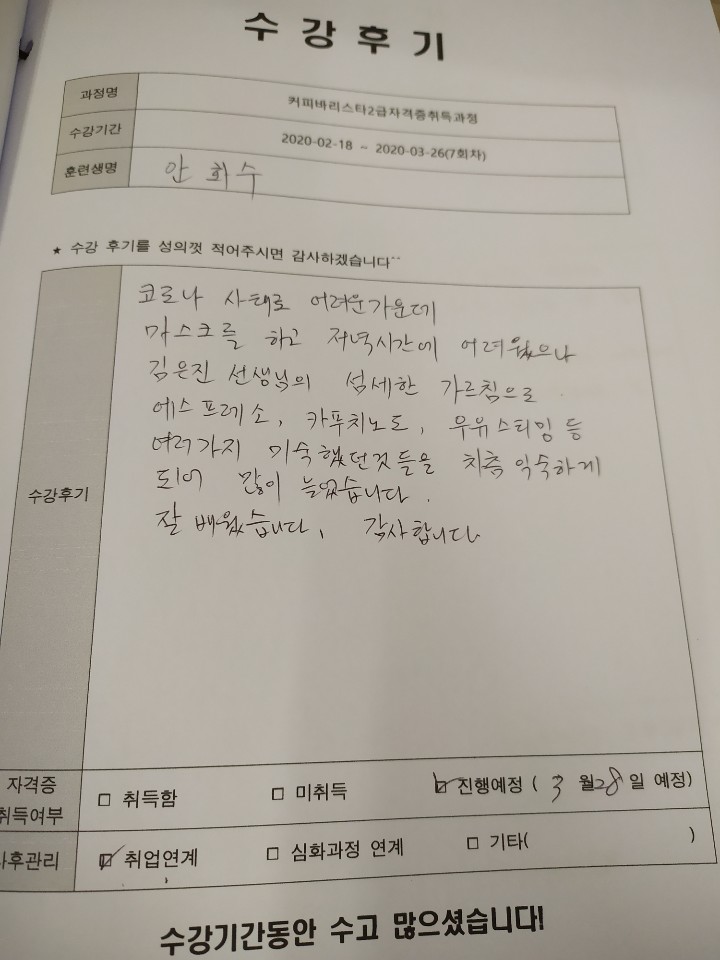 수 강 후 기
과정명 커피바리스타2급자격증취득과정
수강기간 2020-02-18 ~ 2020-03-26(7회차)
훈련생명 안 희 수
★ 수강 후기를 성의껏 적어주시면 감사하겠습니다^^
수강후기
코로나 사태로 어려운가운데
마스크를 하고 저녁시간에 어려웠으나
김은진 선생님의 섬세한 가르침으로
에스프레소, 카푸치노도, 우유스티밍 등
여러가지 미숙했던것들을 차츰 익숙하게
되어 많이 늘었습니다.
잘 배웠습니다, 감사합니다
자격증 취득여부 □ 취득함 □ 미취득 ☑ 진행예정 ( 3 월 28 일 예정)
사후관리 ☑ 취업연계 □ 심화과정 연계 □ 기타( )
수강기간동안 수고 많으셨습니다!